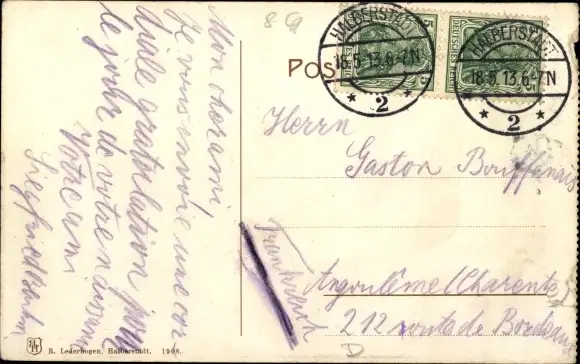 Mon cher ami
Je vous envoie une cor
diale gratulation pour
le jour de votre
Votre ami
Siegfried
R. Lederbogen, Halberstadt. 1908.
POS
HALBERSTADT
18.5.13.6-7N
* 2 *
HALBERSTADT
18.5.13.6-7N
* 2 *
5
DEUTSCHES REICH
Herrn
Gaston
Frankreich
Angoulême (Charente)
212 route de Bordeaux
D